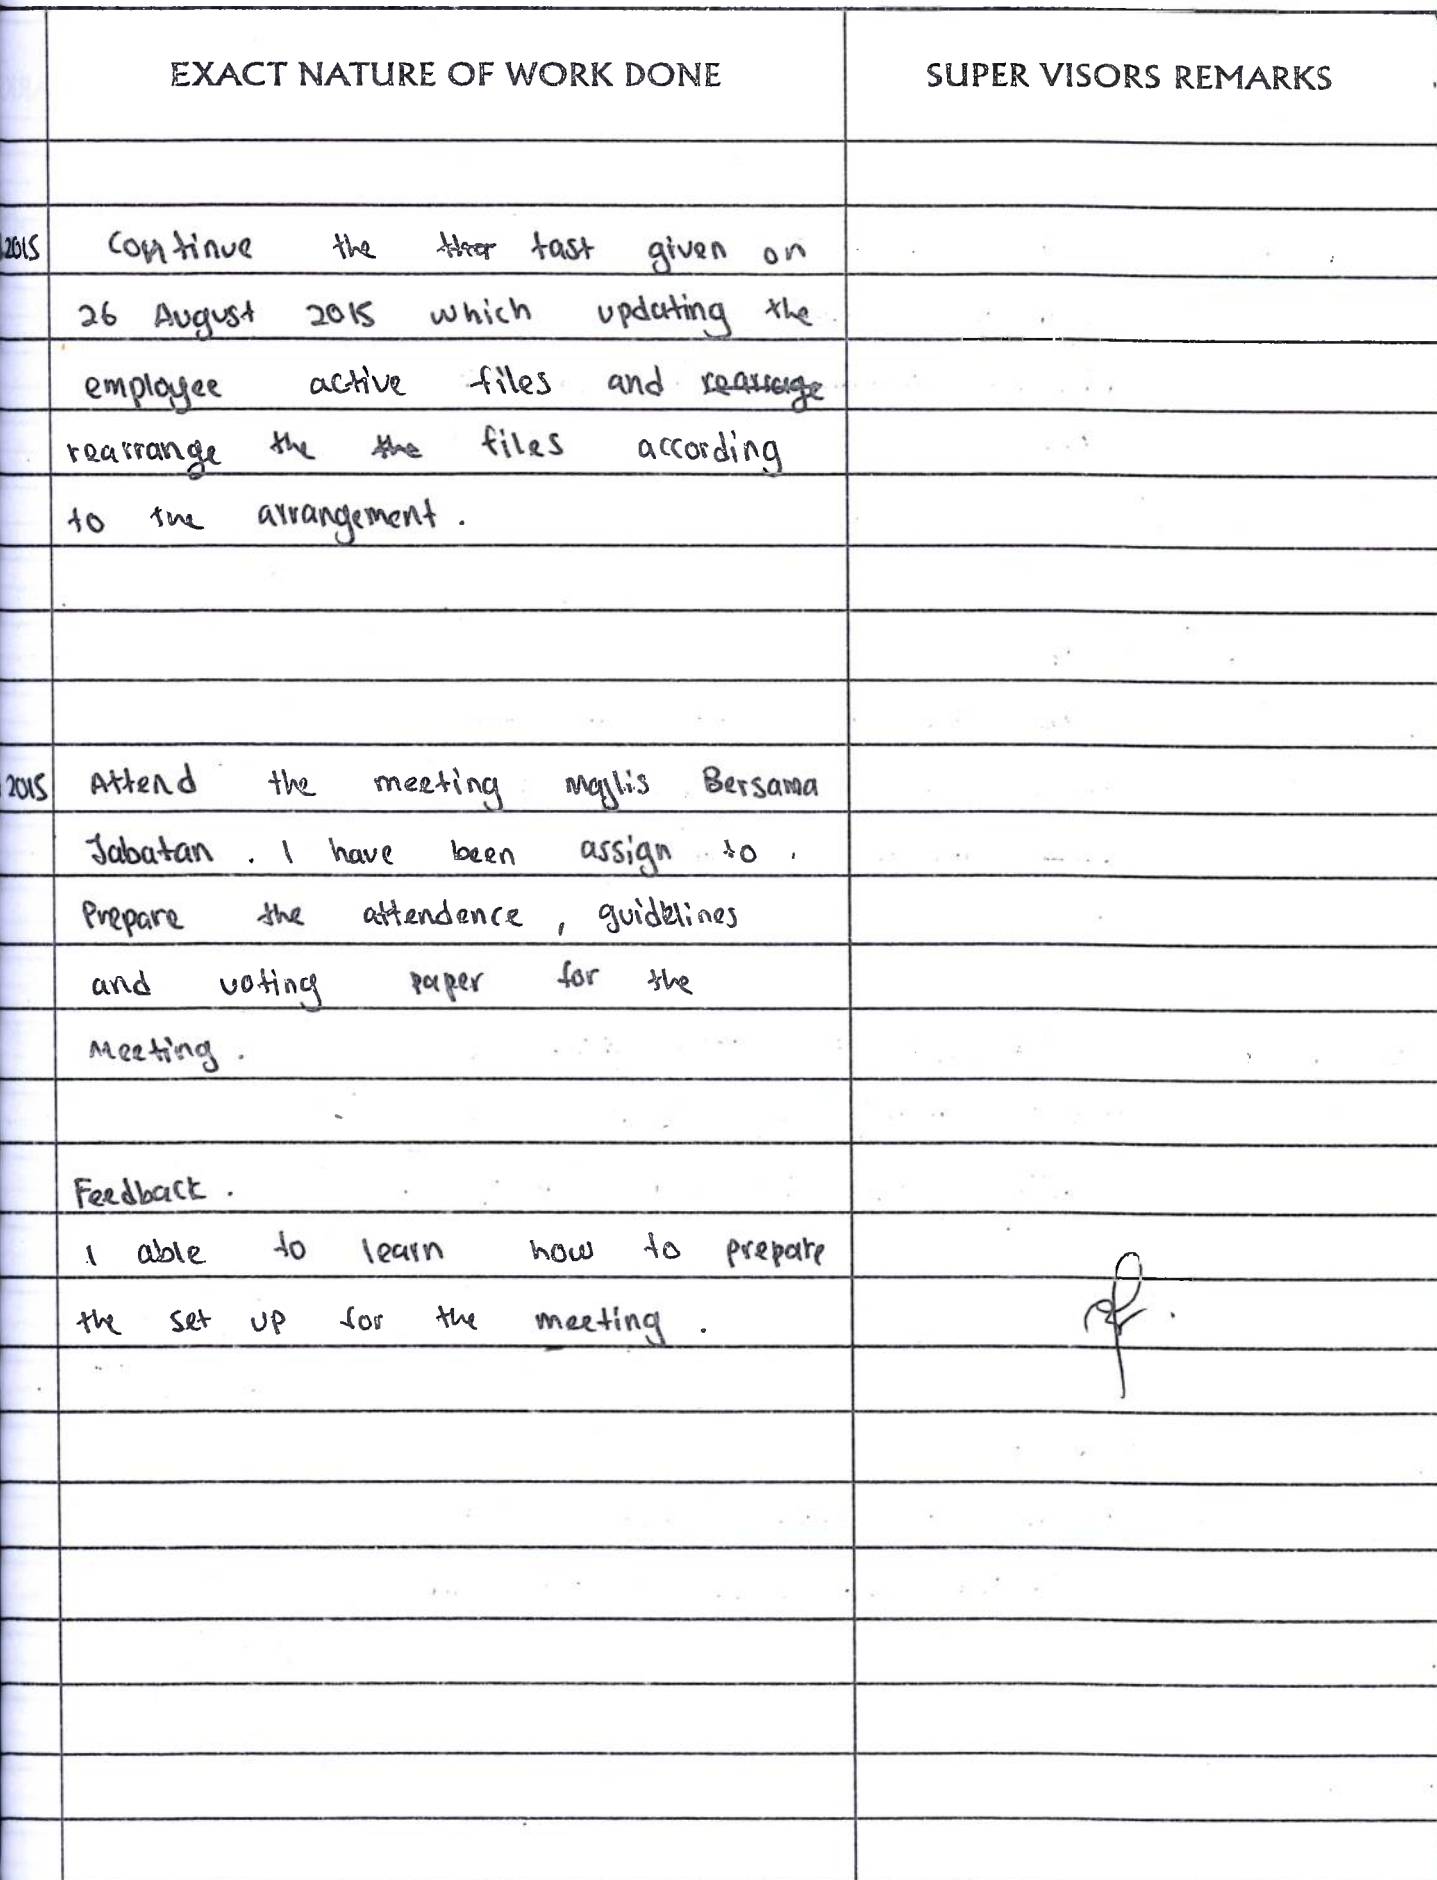 EXACT NATURE OF WORK DONE SUPER VISORS REMARKS
2015 Continue the tast given on
26 August 2015 which updating the
employee active files and rearrage
rearrange the the files according
to the arrangement .
2015 Attend the meeting Majlis Bersama
Jabatan . I have been assign to
Prepare the attendence , guidelines
and voting paper for the
Meeting .
Feedback .
I able to learn how to prepare
the set up for the meeting .